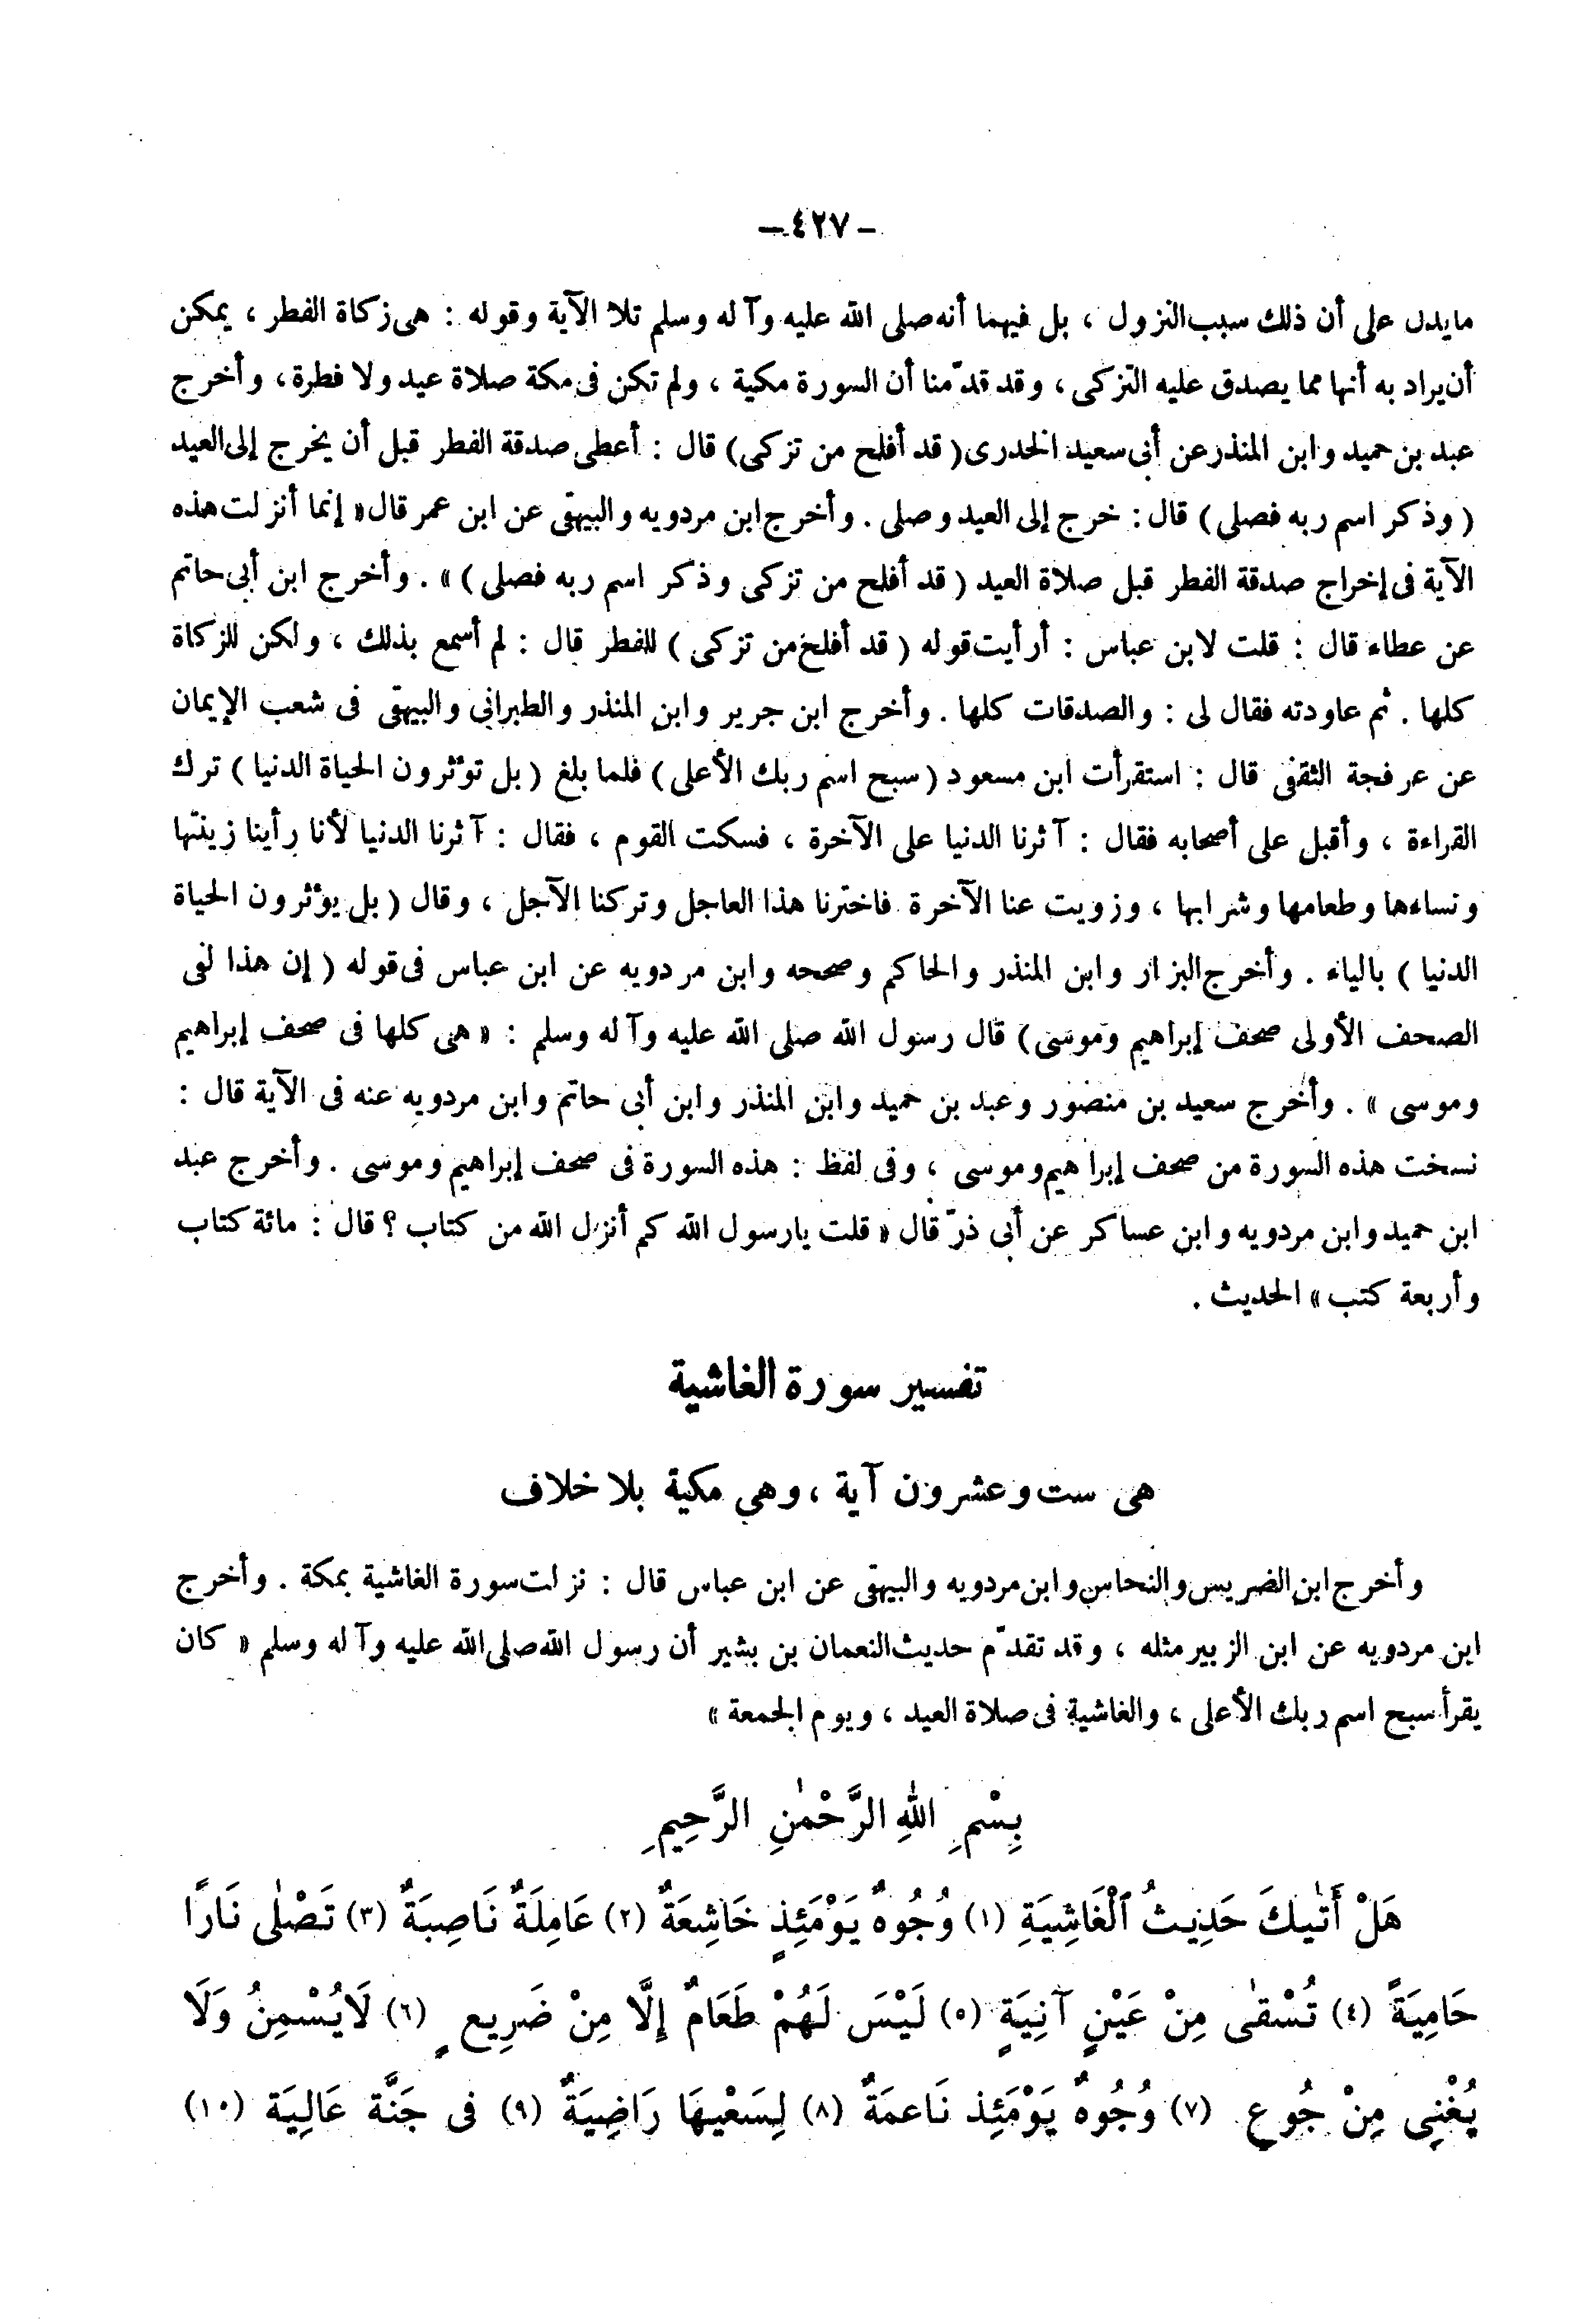 - ٤٢٧ -
مايدل على أن ذلك سبب النزول ، بل فيهما أنه صلى الله عليه وآله وسلم تلا الآية وقوله : هى زكاة الفطر ، يمكن
أن يراد به أنها مما يصدق عليه التزكى ، وقد قدّمنا أن السورة مكية ، ولم تكن فى مكة صلاة عيد ولا فطرة ، وأخرج
عبد بن حميد وابن المنذر عن أبى سعيد الخدرى ( قد أفلح من تزكى ) قال : أعطى صدقة الفطر قبل أن يخرج إلى العيد
( وذكر اسم ربه فصلى ) قال : خرج إلى العيد وصلى . وأخرج ابن مردويه والبيهقى عن ابن عمر قال « إنما أنزلت هذه
الآية فى إخراج صدقة الفطر قبل صلاة العيد ( قد أفلح من تزكى وذكر اسم ربه فصلى ) » . وأخرج ابن أبى حاتم
عن عطاء قال : قلت لابن عباس : أرأيت قوله ( قد أفلح من تزكى ) للفطر قال : لم أسمع بذلك ، ولكن للزكاة
كلها . ثم عاودته فقال لى : والصدقات كلها . وأخرج ابن جرير وابن المنذر والطبرانى والبيهقى فى شعب الإيمان
عن عرفجة الثقفى قال : استقرأت ابن مسعود ( سبح اسم ربك الأعلى ) فلما بلغ ( بل تؤثرون الحياة الدنيا ) ترك
القراءة ، وأقبل على أصحابه فقال : آثرنا الدنيا على الآخرة ، فسكت القوم ، فقال : آثرنا الدنيا لأنا رأينا زينتها
ونساءها وطعامها وشرابها ، وزويت عنا الآخرة فاخترنا هذا العاجل وتركنا الآجل ، وقال ( بل يؤثرون الحياة
الدنيا ) بالياء . وأخرج البزار وابن المنذر والحاكم وصححه وابن مردويه عن ابن عباس فى قوله ( إن هذا لفى
الصحف الأولى صحف إبراهيم وموسى ) قال رسول الله صلى الله عليه وآله وسلم : « هى كلها فى صحف إبراهيم
وموسى » . وأخرج سعيد بن منصور وعبد بن حميد وابن المنذر وابن أبى حاتم وابن مردويه عنه فى الآية قال :
نسخت هذه السورة من صحف إبراهيم وموسى ، وفى لفظ : هذه السورة فى صحف إبراهيم وموسى . وأخرج عبد
ابن حميد وابن مردويه وابن عساكر عن أبى ذرّ قال « قلت يارسول الله كم أنزل الله من كتاب ؟ قال : مائة كتاب
وأربعة كتب » الحديث .
تفسير سورة الغاشية
هى ست وعشرون آية ، وهى مكية بلا خلاف
وأخرج ابن الضريس والنحاس وابن مردويه والبيهقى عن ابن عباس قال : نزلت سورة الغاشية بمكة . وأخرج
ابن مردويه عن ابن الزبير مثله ، وقد تقدّم حديث النعمان بن بشير أن رسول الله صلى الله عليه وآله وسلم « كان
يقرأ سبح اسم ربك الأعلى ، والغاشية فى صلاة العيد ، ويوم الجمعة »
بِسْمِ اللهِ الرَّحْمٰنِ الرَّحِيمِ
هَلْ أَتٰيكَ حَدِيثُ ٱلْغَاشِيَةِ (١) وُجُوهٌ يَوْمَئِذٍ خَاشِعَةٌ (٢) عَامِلَةٌ نَاصِبَةٌ (٣) تَصْلٰى نَارًا
حَامِيَةً (٤) تُسْقٰى مِنْ عَيْنٍ آنِيَةٍ (٥) لَيْسَ لَهُمْ طَعَامٌ إِلَّا مِنْ ضَرِيعٍ (٦) لَايُسْمِنُ وَلَا
يُغْنِى مِنْ جُوعٍ (٧) وُجُوهٌ يَوْمَئِذ نَاعمَةٌ (٨) لِسَعْيِهَا رَاضِيَةٌ (٩) فى جَنَّة عَالِيَة (١٠)